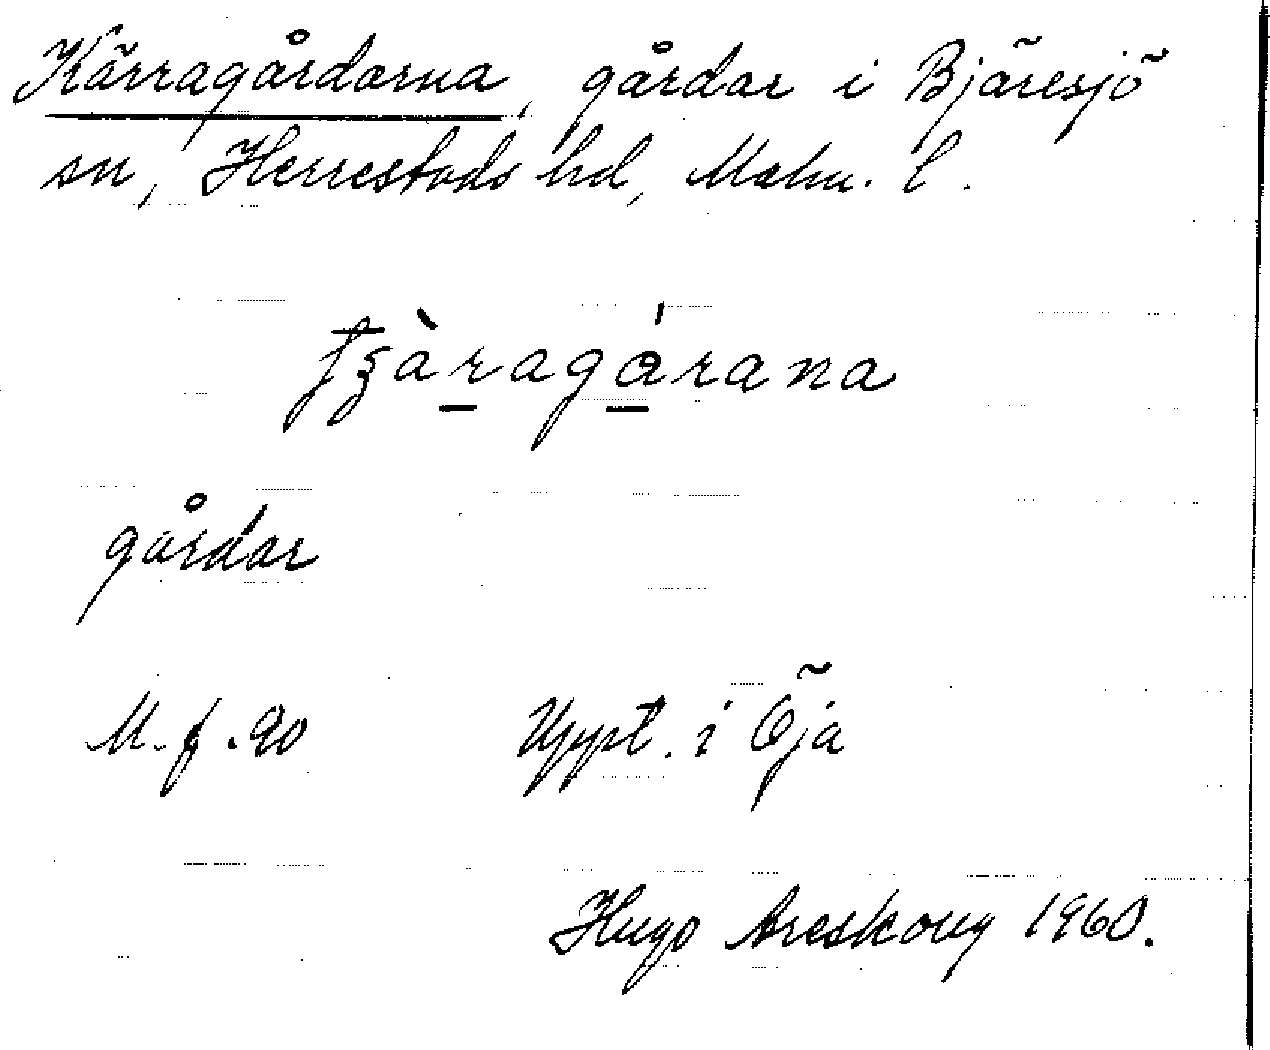 Kärragårdarna, gårdar i Bjäresjö
sn, Herrestads hd, Malm. l.
gårdar
M. f. 90 Uppt. i Öja
Hugo Areskoug 1960.